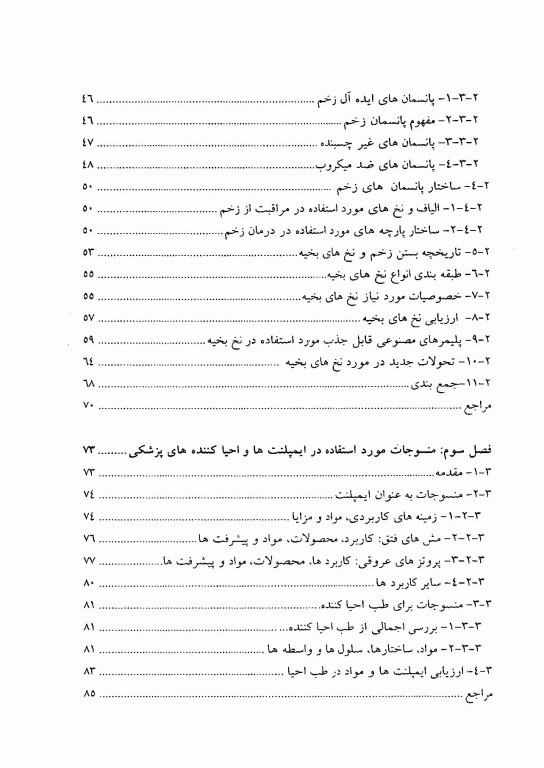 ۲-۳-۱- پانسمان های ایده آل زخم ........ ٤٦
۲-۳-۲- مفهوم پانسمان زخم ........ ٤٦
۲-۳-۳- پانسمان های غیر چسبنده ........ ٤٧
۲-۳-٤- پانسمان های ضد میکروب ........ ٤٨
۲-٤- ساختار پانسمان های زخم ........ ٥٠
۲-٤-۱- الیاف و نخ های مورد استفاده در مراقبت از زخم ........ ٥٠
۲-٤-۲- ساختار پارچه های مورد استفاده در درمان زخم ........ ٥٠
۲-٥- تاریخچه بستن زخم و نخ های بخیه ........ ٥٣
۲-٦- طبقه بندی انواع نخ های بخیه ........ ٥٥
۲-۷- خصوصیات مورد نیاز نخ های بخیه ........ ٥٥
۲-۸- ارزیابی نخ های بخیه ........ ٥٧
۲-۹- پلیمرهای مصنوعی قابل جذب مورد استفاده در نخ بخیه ........ ٥٩
۲-۱۰- تحولات جدید در مورد نخ های بخیه ........ ٦٤
۲-۱۱-جمع بندی ........ ٦٨
مراجع ........ ٧٠
فصل سوم: منسوجات مورد استفاده در ایمپلنت ها و احیا کننده های پزشکی ........ ٧٣
۳-۱- مقدمه ........ ٧٣
۳-۲- منسوجات به عنوان ایمپلنت ........ ٧٤
۳-۲-۱- زمینه های کاربردی، مواد و مزایا ........ ٧٤
۳-۲-۲- مش های فتق: کاربرد، محصولات، مواد و پیشرفت ها ........ ٧٦
۳-۲-۳- پروتز های عروقی: کاربرد ها، محصولات، مواد و پیشرفت ها ........ ٧٧
۳-۲-٤- سایر کاربرد ها ........ ٨٠
۳-۳- منسوجات برای طب احیا کننده ........ ٨١
۳-۳-۱- بررسی اجمالی از طب احیا کننده ........ ٨١
۳-۳-۲- مواد، ساختارها، سلول ها و واسطه ها ........ ٨١
۳-٤- ارزیابی ایمپلنت ها و مواد در طب احیا ........ ٨٣
مراجع ........ ٨٥